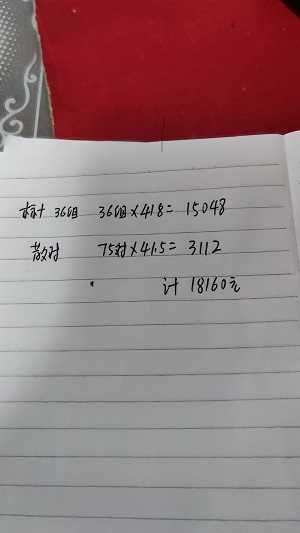 标叶 36组 36组×418=15048
散对 75对×41.5=3112
计 18160元